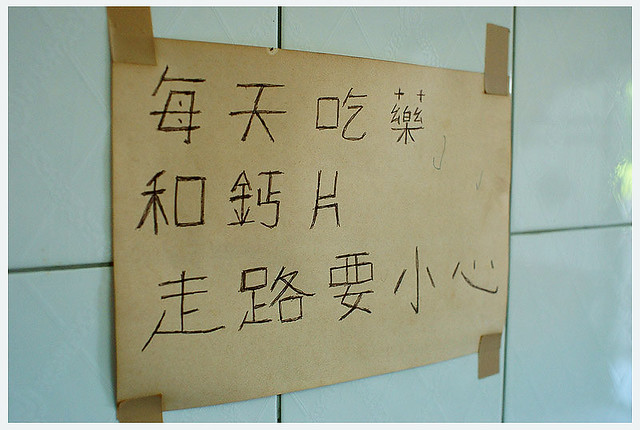 每天吃藥
和鈣片
走路要小心